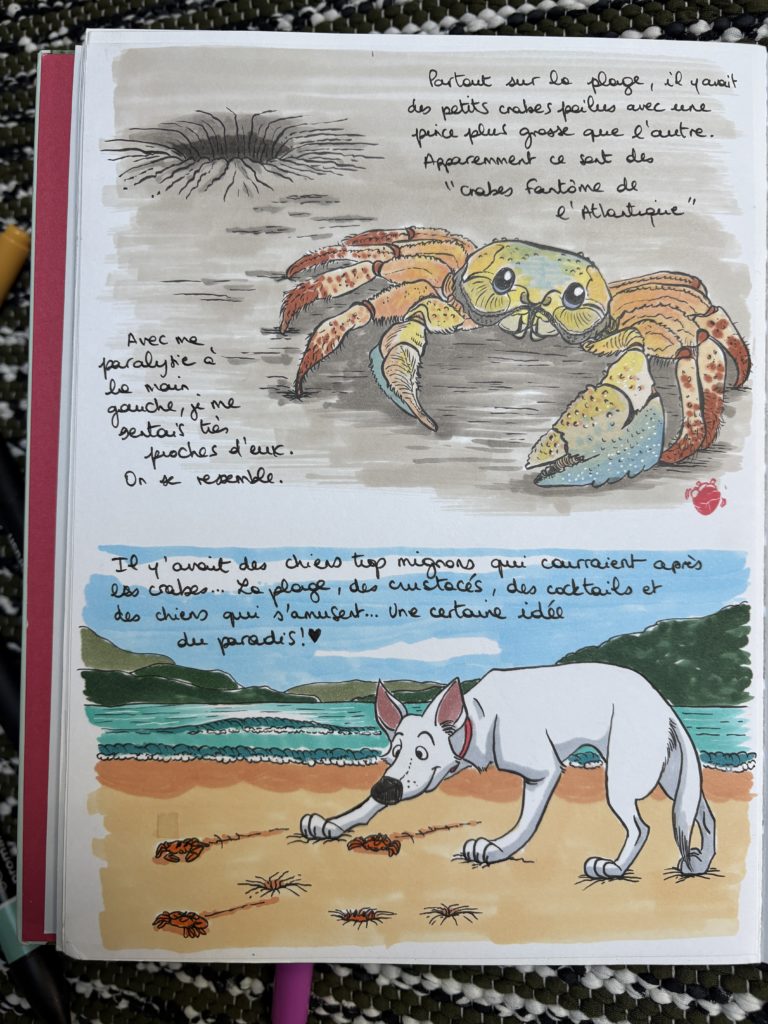 Partout sur la plage, il y avait
des petits crabes poilus avec une
pince plus grosse que l'autre.
Apparemment ce sont des
"crabes fantôme de
l'Atlantique"
Avec ma
paralysie à
la main
gauche, je me
sentais très
proches d'eux.
On se ressemble.
Il y'avait des chiens trop mignons qui couraient après
les crabes... La plage, des crustacés, des cocktails et
des chiens qui s'amusent... Une certaine idée
du paradis! ♥